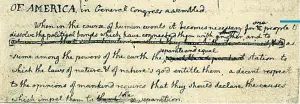 OF AMERICA, in General Congress assembled.
When in the course of human events it becomes necessary for one people to
dissolve the political bands which have connected them with another, and to
sume among the powers of the earth the separate and equal station to
which the laws of nature & of nature's god entitle them, a decent respect
to the opinions of mankind requires that they should declare the causes
which impel them to the separation.